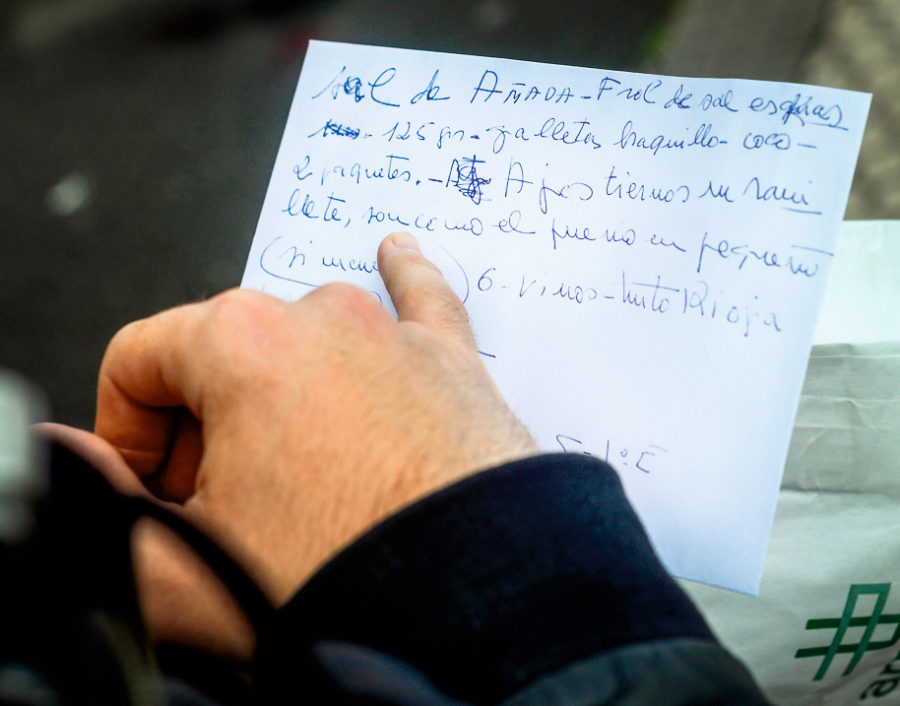 sal de AÑADA - Frol de sal escamas
- 125 grs - galletas braquillo - coco -
2 paquetes. - Ajos tiernos en rami
llete, son como el puerro en pequeño
(si
) 6 - vinos - tinto Rioja
1º E
#